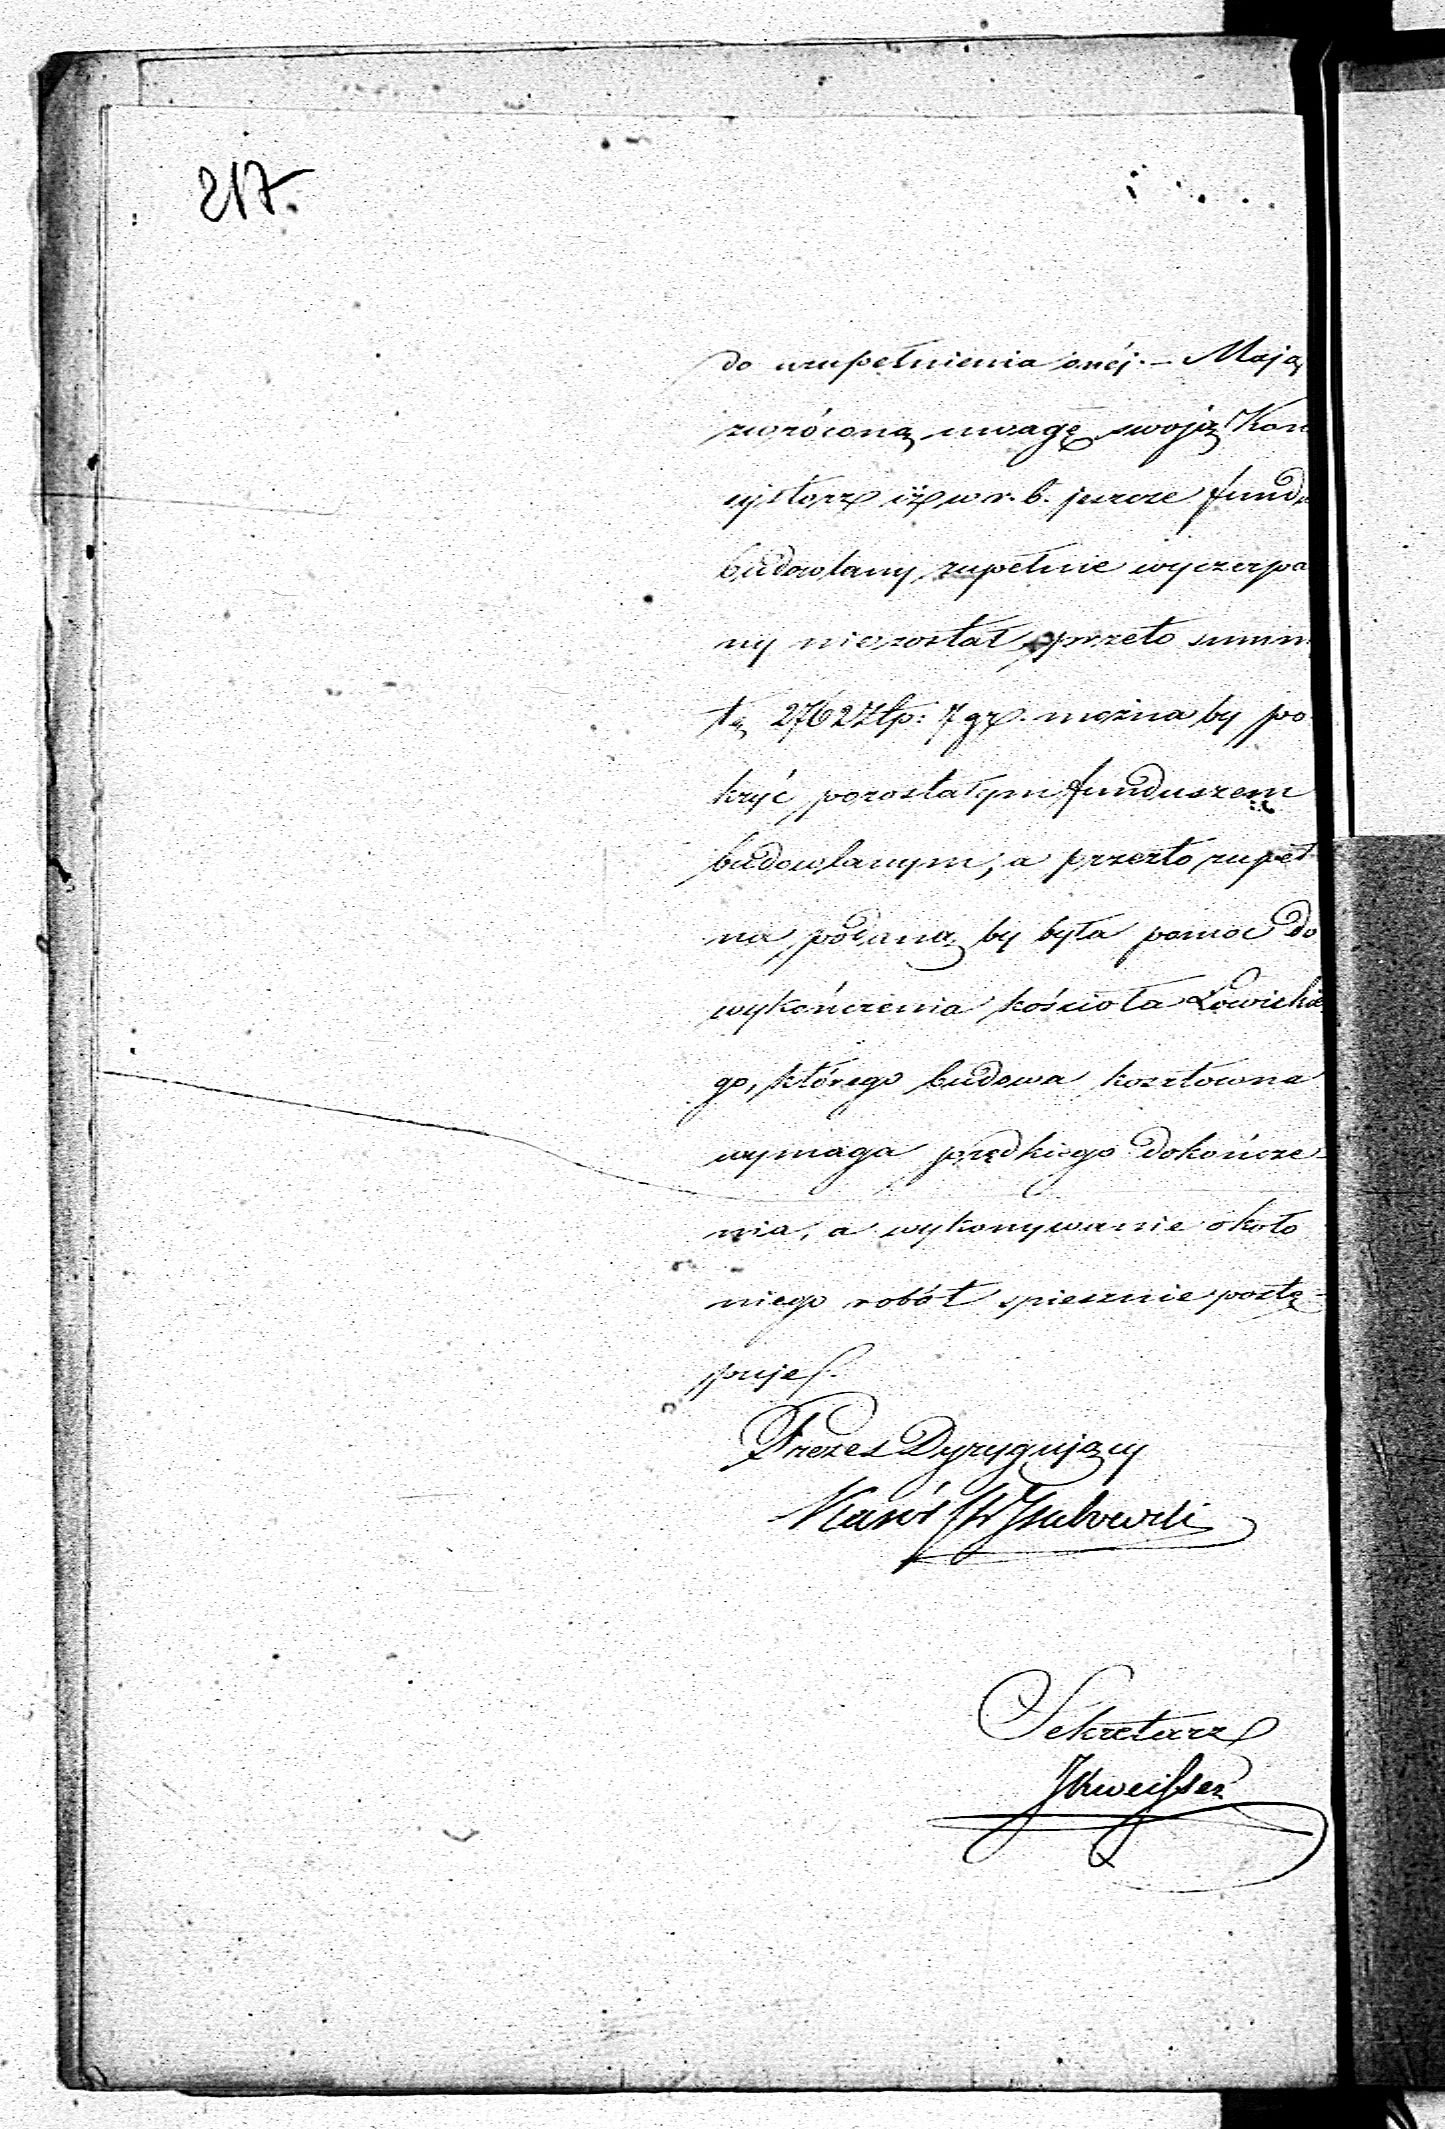 217.
do uzupełnienia onéj. – Mają
zwróconą uwagę swoją Kon
systorz iż w r. b. jeszcze fundu
budowlany zupełnie wyczerpa
ny niezostał, przeto summ
tę 2762 Złp: 7 gr. można by po
kryć pozostałym funduszem
budowlanym, a przezto zupeł
na podaną by była pomoc do
wykończenia kościoła Łowickie
go, którego budowa kosztowna
wymaga prędkiego dokończe-
nia, a wykonywanie około
niego robót spiesznie postę-
puje.
Prezes Dyrygujący
Sekretarz